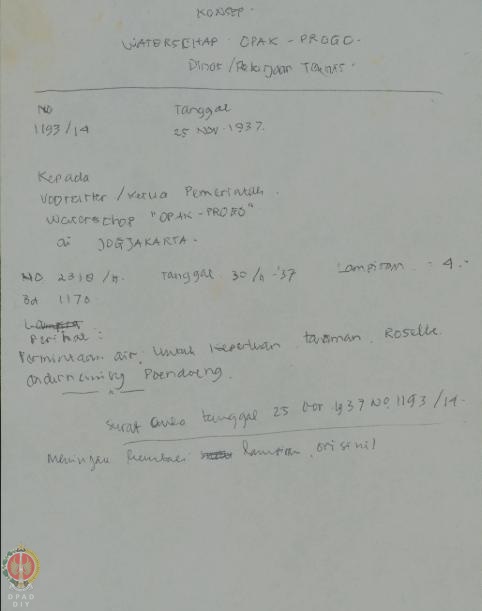 KONSEP.
WATERSCHAP OPAK-PROGO.
Dinas/Pekerjaan TEKNIS.
NO Tanggal
1193/14 25 NOV. 1937.
Kepada
Voorzitter/Ketua Pemerintah.
Waterschap "OPAK-PROGO"
di JOGJAKARTA.
NO. 2318/ Tanggal 30/ -'37 Lampiran : 4.-
Bd 1170
Lampiran
Perihal :
Permintaan air, untuk keperluan tanaman Rosella
onderneming Poendoeng.
Surat tanggal 25 1937 No. 1193/14.
lampiran orisinil
DPAD
DIY